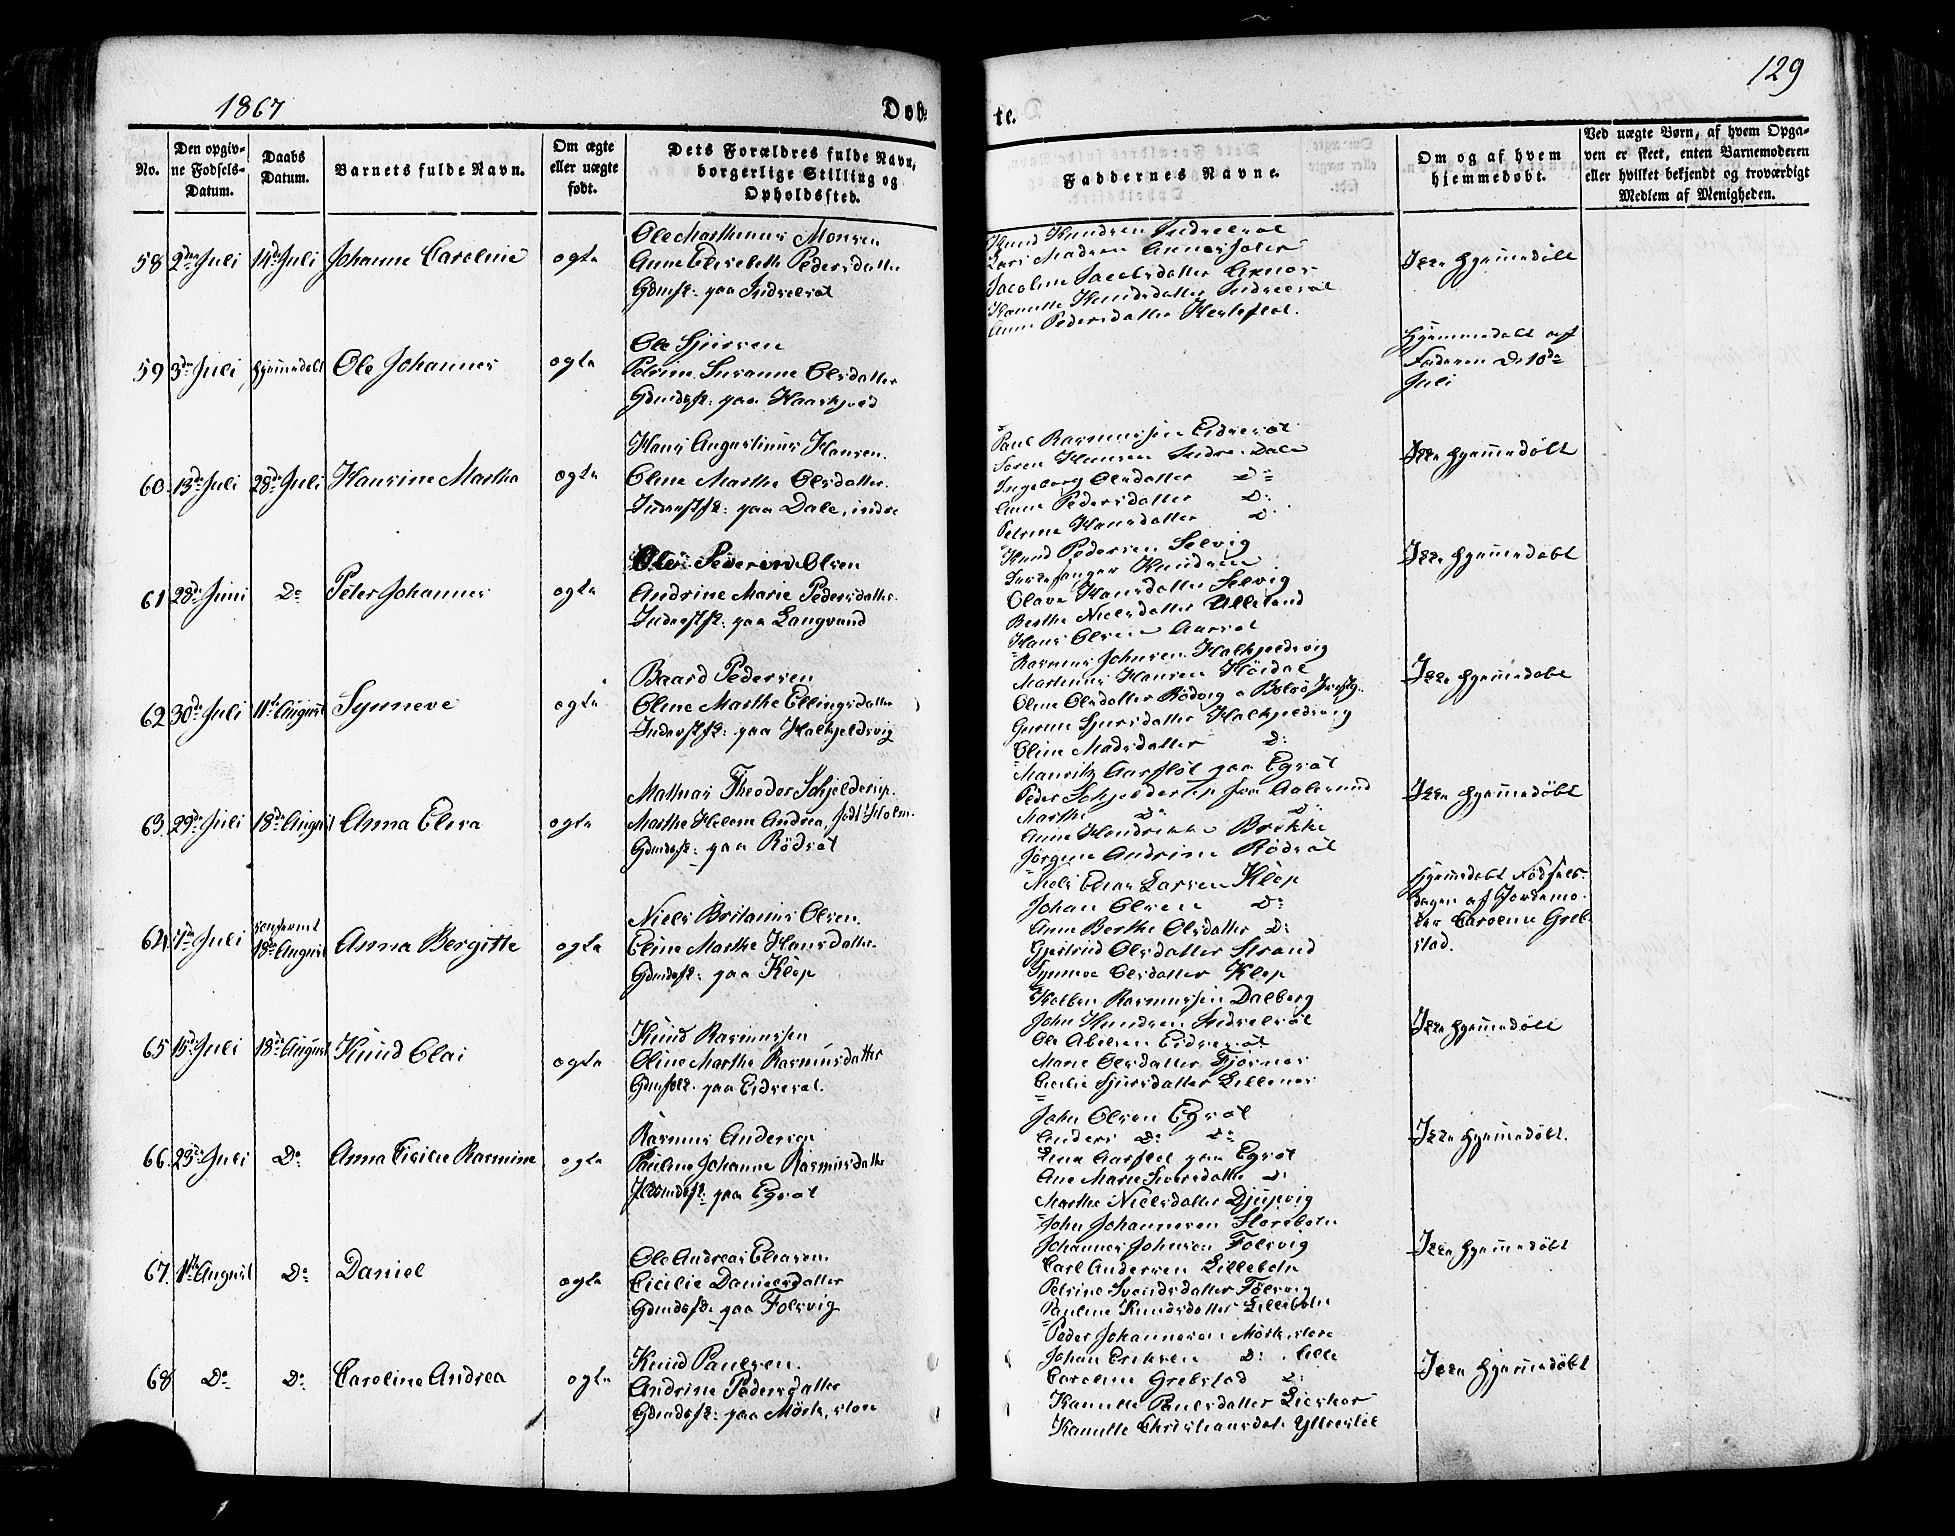 1867
Døb-
te.
129
No.
Den opgiv-
ne Fødsels-
Datum.
Daabs
Datum.
Barnets fulde Navn.
Om ægte
eller uægte
født.
Dets Forældres fulde Navn,
borgerlige Stilling og
Opholdssted.
Faddernes Navne.
Om og af hvem
hjemmedøbt.
Ved uægte Børn, af hvem Opga-
ven er skeet, enten Barnemoderen
eller hvilket bekjendt og troværdigt
Medlem af Menigheden.
58 2den Juli 14de Juli Johanne Caroline ægte
Ole Marthinus Monsen
Anne Elisebeth Pedersdatter
Gdmfk: paa Indresæt
Knud Knudsen Indresæt
Lars Madsen
Jacobine Jacobsdatter
Kanutte Knudsdatter Indresæt
Anne Pedersdatter
Ikke hjemmedøbt
59 3die Juli hjemmedøbt Ole Johannes ægte
Ole Sjursen
Petrine Susanne Olsdatter
Gdmdsfk: paa
Hjemmedøbt af
Faderen D. 10de
Juli
60 13de Juli 28de Juli Hansine Martha ægte
Hans Augustinus Hansen.
Oline Marthe Olsdatter.
Inderstfk: paa Dale, indre
Paul Rasmussen Eidsesæt
Søren Hansen Indre Dale
Ingeborg Olsdatter Do
Anne Pedersdatter D:
Petrine Hansdatter D:
Ikke hjemmedøbt
61 28de Juni Do Peter Johannes ægte
Olsen
Andrine Marie Pedersdatter.
Inderstfk: paa Langvand
Knud Pedersen Selvig
Knudsen
Olave Hansdatter Selvig
Berthe Nielsdatter Ulleland
Hans Olsen Aarset
Ikke hjemmedøbt
62 30de Juli 11te August Synneve ægte
Baard Pedersen
Oline Marthe Ellingsdatter
Inderstfk: paa Halkjeldsvig
Rasmus Johnsen Halkjeldsvig
Marthinus Hansen Höidal
Oline Olsdatter Rödvig
Gurine Sjursdatter Halkjeldsvig
Oline Madsdatter D:
Ikke hjemmedøbt
63 29de Juli 18de August Anna Elisa ægte
Mathias Theodor Schjelderup.
Marthe Helene Andrea, født Holm.
Gdmdsfk: paa Rödsæt
Mauritz Aarflöt paa Egsæt
Peder Schjelderup fra Aalesund
Marthe Do D:
Anne Hendrikke Brekke
Jørgine Andrine Rödsæt
Ikke hjemmedøbt
64 7de Juli
18de August Anna Bergitte ægte
Niels Britanus Olsen.
Eline Marthe Hansdatter.
Gdmdsfk: paa Klep
Niels Elias Larsen Klep
Johan Olsen D:
Anne Berthe Olsdatter D:
Gjertrud Olsdatter Strand
Synneve Olsdatter Klep
Hjemmedøbt Fødsels-
dagen af Jordemo-
der Caroline Greb-
stad.
65 15de Juli 18de August Knud Olai ægte
Knud Rasmussen
Oline Marthe Rasmusdatter
Gdmfolk: paa Eidsesæt.
Kolben Rasmussen Dalberg
John Knudsen Indresæt
Ole Abelsen Eidsesæt
Marie Olsdatter
Cecilie Sjursdatter
Ikke hjemmedøbt
66 23de Juli Do Anna Cicilie Rasmine ægte
Rasmus Andersen
Pauline Johanne Rasmusdatter
paa Egsæt
John Olsen Egsæt
Anders Do Do
Lina Aarflot paa Egsæt
Ane Marie Siversdatter D:
Marthe Nielsdatter Djupvig
Ikke hjemmedøbt.
67 1ste August Do Daniel ægte
Ole Andreas Eliasen.
Cicilie Danielsdatter
Gdmdsfk: paa Folsvig
John Johannesen Storebotn
Johannes Johnsen Folsvig
Carl Andersen Lillebotn
Petrine Svendsdatter Folsvig
Pauline Knudsdatter Lillebotn
Ikke hjemmedøbt
68 Do Do Caroline Andrea ægte
Knud Paulsen.
Andrine Pedersdatter
Gdmdsfk: paa Mörk, store
Peder Johannesen Mörk, store
Johan Eriksen D: lille
Caroline Grebstad D:
Kanutte Paulsdatter
Kanutte Christiansdat.
Ikke hjemmedøbt